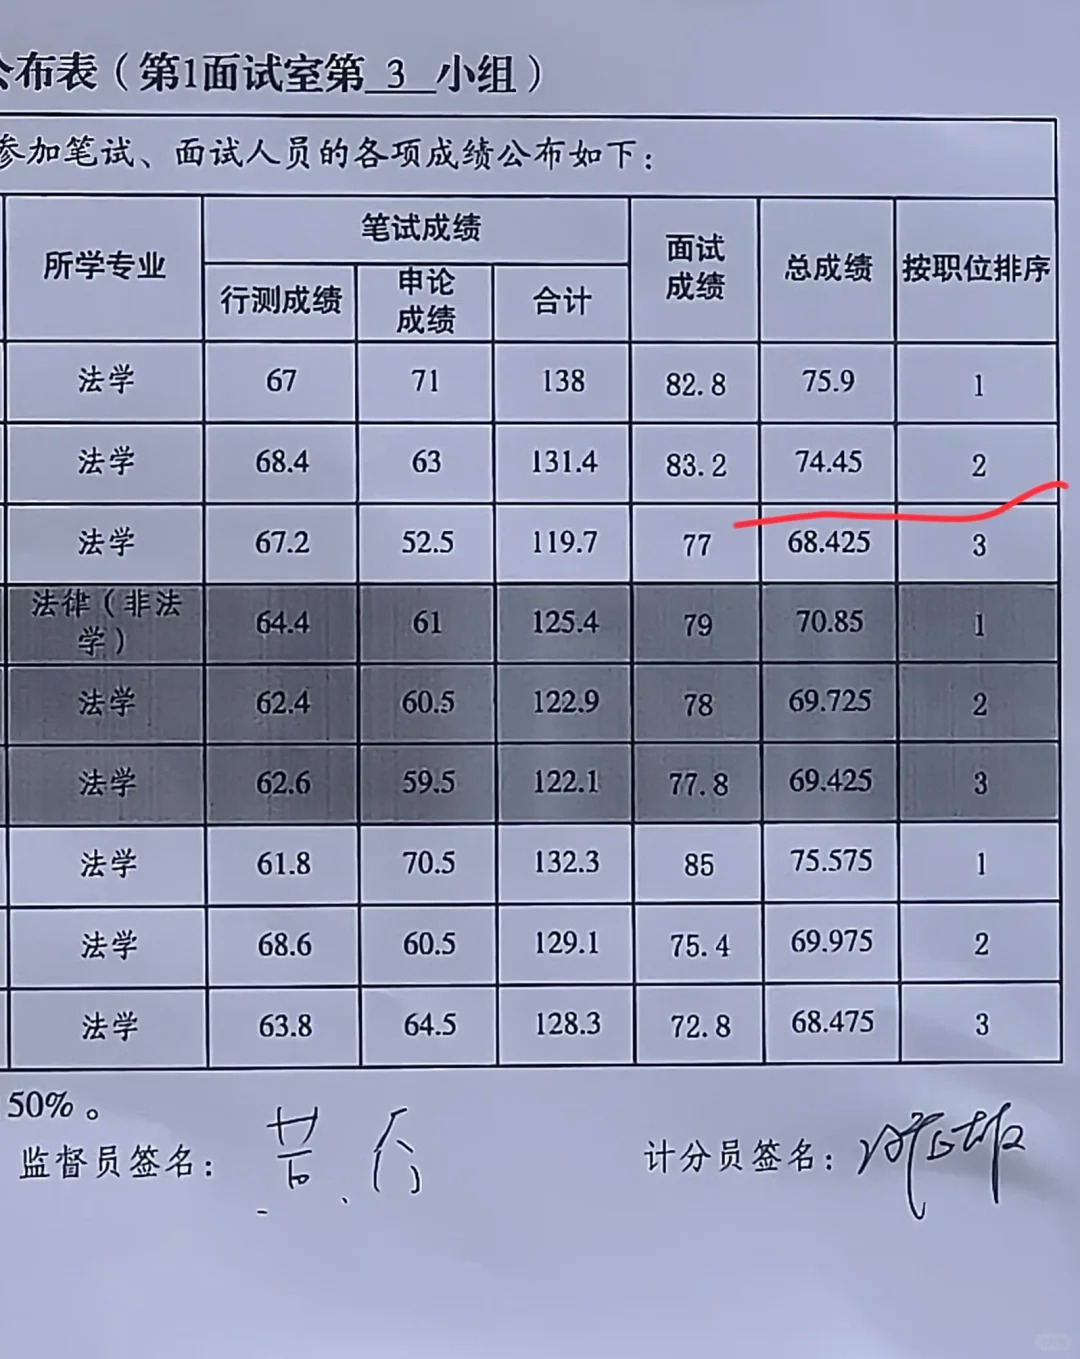 公布表（第1面试室第 3 小组）
参加笔试、面试人员的各项成绩公布如下：
所学专业 笔试成绩 面试成绩 总成绩 按职位排序
行测成绩 申论成绩 合计
法学 67 71 138 82.8 75.9 1
法学 68.4 63 131.4 83.2 74.45 2
法学 67.2 52.5 119.7 77 68.425 3
法律（非法学） 64.4 61 125.4 79 70.85 1
法学 62.4 60.5 122.9 78 69.725 2
法学 62.6 59.5 122.1 77.8 69.425 3
法学 61.8 70.5 132.3 85 75.575 1
法学 68.6 60.5 129.1 75.4 69.975 2
法学 63.8 64.5 128.3 72.8 68.475 3
50%。
监督员签名： 计分员签名：